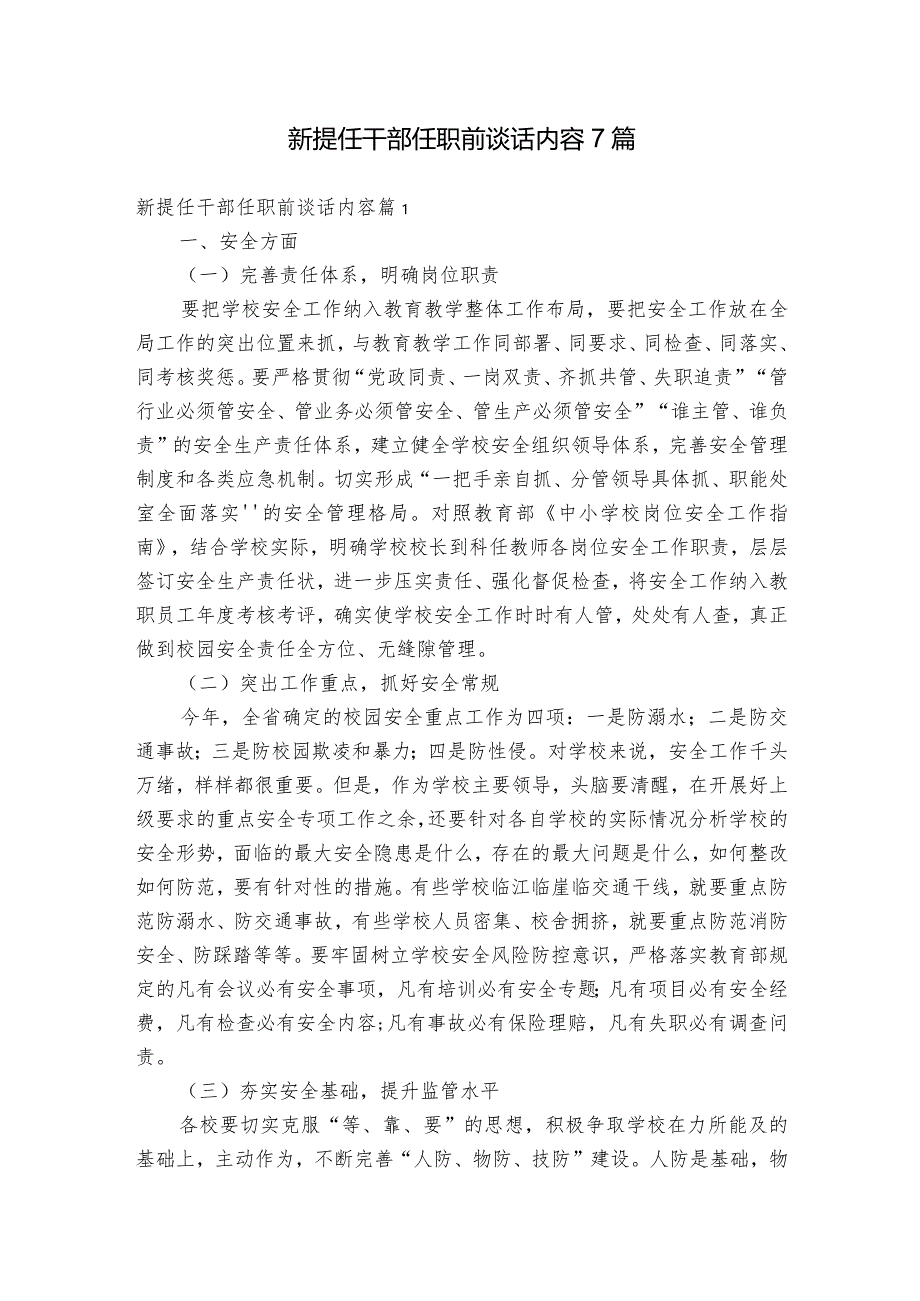 新提任干部任职前谈话内容 7 篇
新提任干部任职前谈话内容篇 1
一、安全方面
（一）完善责任体系，明确岗位职责
要把学校安全工作纳入教育教学整体工作布局，要把安全工作放在全
局工作的突出位置来抓，与教育教学工作同部署、同要求、同检查、同落实、
同考核奖惩。要严格贯彻“党政同责、一岗双责、齐抓共管、失职追责”“管
行业必须管安全、管业务必须管安全、管生产必须管安全”“谁主管、谁负
责”的安全生产责任体系，建立健全学校安全组织领导体系，完善安全管理
制度和各类应急机制。切实形成“一把手亲自抓、分管领导具体抓、职能处
室全面落实''的安全管理格局。对照教育部《中小学校岗位安全工作指
南》，结合学校实际，明确学校校长到科任教师各岗位安全工作职责，层层
签订安全生产责任状，进一步压实责任、强化督促检查，将安全工作纳入教
职员工年度考核考评，确实使学校安全工作时时有人管，处处有人查，真正
做到校园安全责任全方位、无缝隙管理。
（二）突出工作重点，抓好安全常规
今年，全省确定的校园安全重点工作为四项：一是防溺水；二是防交
通事故；三是防校园欺凌和暴力；四是防性侵。对学校来说，安全工作千头
万绪，样样都很重要。但是，作为学校主要领导，头脑要清醒，在开展好上
级要求的重点安全专项工作之余，还要针对各自学校的实际情况分析学校的
安全形势，面临的最大安全隐患是什么，存在的最大问题是什么，如何整改
如何防范，要有针对性的措施。有些学校临江临崖临交通干线，就要重点防
范防溺水、防交通事故，有些学校人员密集、校舍拥挤，就要重点防范消防
安全、防踩踏等等。要牢固树立学校安全风险防控意识，严格落实教育部规
定的凡有会议必有安全事项，凡有培训必有安全专题；凡有项目必有安全经
费，凡有检查必有安全内容;凡有事故必有保险理赔，凡有失职必有调查问
责。
（三）夯实安全基础，提升监管水平
各校要切实克服“等、靠、要”的思想，积极争取学校在力所能及的
基础上，主动作为，不断完善“人防、物防、技防”建设。人防是基础，物